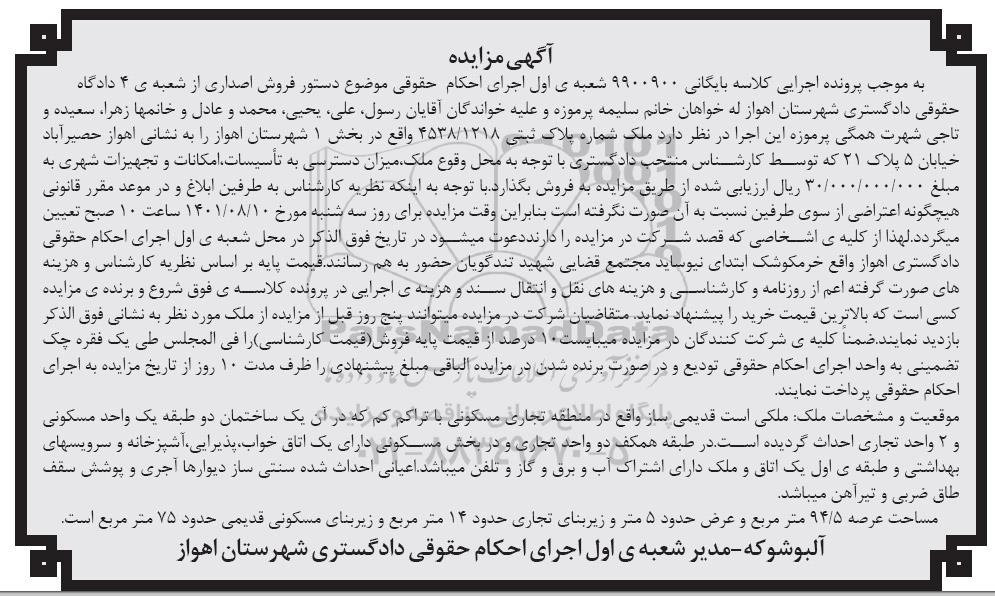 آگهی مزایده
به موجب پرونده اجرایی کلاسه بایگانی ۹۹۰۰۹۰۰ شعبه ی اول اجرای احکام حقوقی موضوع دستور فروش اصداری از شعبه ی ۴ دادگاه
حقوقی دادگستری شهرستان اهواز له خواهان خانم سلیمه پرموزه و علیه خواندگان آقایان رسول، علی، یحیی، محمد و عادل و خانمها زهرا، سعیده و
تاجی شهرت همگی پرموزه این اجرا در نظر دارد ملک شماره پلاک ثبتی ۴۵۳۸/۱۲۱۸ واقع در بخش ۱ شهرستان اهواز را به نشانی اهواز حصیرآباد
خیابان ۵ پلاک ۲۱ که توسط کارشناس منتخب دادگستری با توجه به محل وقوع ملک،میزان دسترسی به تأسیسات،امکانات و تجهیزات شهری به
مبلغ ۳۰/۰۰۰/۰۰۰/۰۰۰ ریال ارزیابی شده از طریق مزایده به فروش بگذارد.با توجه به اینکه نظریه کارشناس به طرفین ابلاغ و در موعد مقرر قانونی
هیچگونه اعتراضی از سوی طرفین نسبت به آن صورت نگرفته است بنابراین وقت مزایده برای روز سه شنبه مورخ ۱۴۰۱/۰۸/۱۰ ساعت ۱۰ صبح تعیین
میگردد.لهذا از کلیه ی اشخاصی که قصد شرکت در مزایده را دارنددعوت میشود در تاریخ فوق الذکر در محل شعبه ی اول اجرای احکام حقوقی
دادگستری اهواز واقع خرمکوشک ابتدای نیوساید مجتمع قضایی شهید تندگویان حضور به هم رسانند.قیمت پایه بر اساس نظریه کارشناس و هزینه
های صورت گرفته اعم از روزنامه و کارشناسی و هزینه های نقل و انتقال سند و هزینه ی اجرایی در پرونده کلاسه ی فوق شروع و برنده ی مزایده
کسی است که بالاترین قیمت خرید را پیشنهاد نماید. متقاضیان شرکت در مزایده میتوانند پنج روز قبل از مزایده از ملک مورد نظر به نشانی فوق الذکر
بازدید نمایند.ضمناً کلیه ی شرکت کنندگان در مزایده میبایست۱۰ درصد از قیمت پایه فروش(قیمت کارشناسی)را فی المجلس طی یک فقره چک
تضمینی به واحد اجرای احکام حقوقی تودیع و در صورت برنده شدن در مزایده الباقی مبلغ پیشنهادی را ظرف مدت ۱۰ روز از تاریخ مزایده به اجرای
احکام حقوقی پرداخت نمایند.
موقعیت و مشخصات ملک: ملکی است قدیمی ساز واقع در منطقه تجاری مسکونی با تراکم کم که در آن یک ساختمان دو طبقه یک واحد مسکونی
و ۲ واحد تجاری احداث گردیده است.در طبقه همکف دو واحد تجاری و در بخش مسکونی دارای یک اتاق خواب،پذیرایی،آشپزخانه و سرویسهای
بهداشتی و طبقه ی اول یک اتاق و ملک دارای اشتراک آب و برق و گاز و تلفن میباشد.اعیانی احداث شده سنتی ساز دیوارها آجری و پوشش سقف
طاق ضربی و تیرآهن میباشد.
مساحت عرصه ۹۴/۵ متر مربع و عرض حدود ۵ متر و زیربنای تجاری حدود ۱۴ متر مربع و زیربنای مسکونی قدیمی حدود ۷۵ متر مربع است.
آلبوشوکه-مدیر شعبه ی اول اجرای احکام حقوقی دادگستری شهرستان اهواز
ParsNamadData
۰۲۱-۸۸۳۴۹۶۷۰-۵